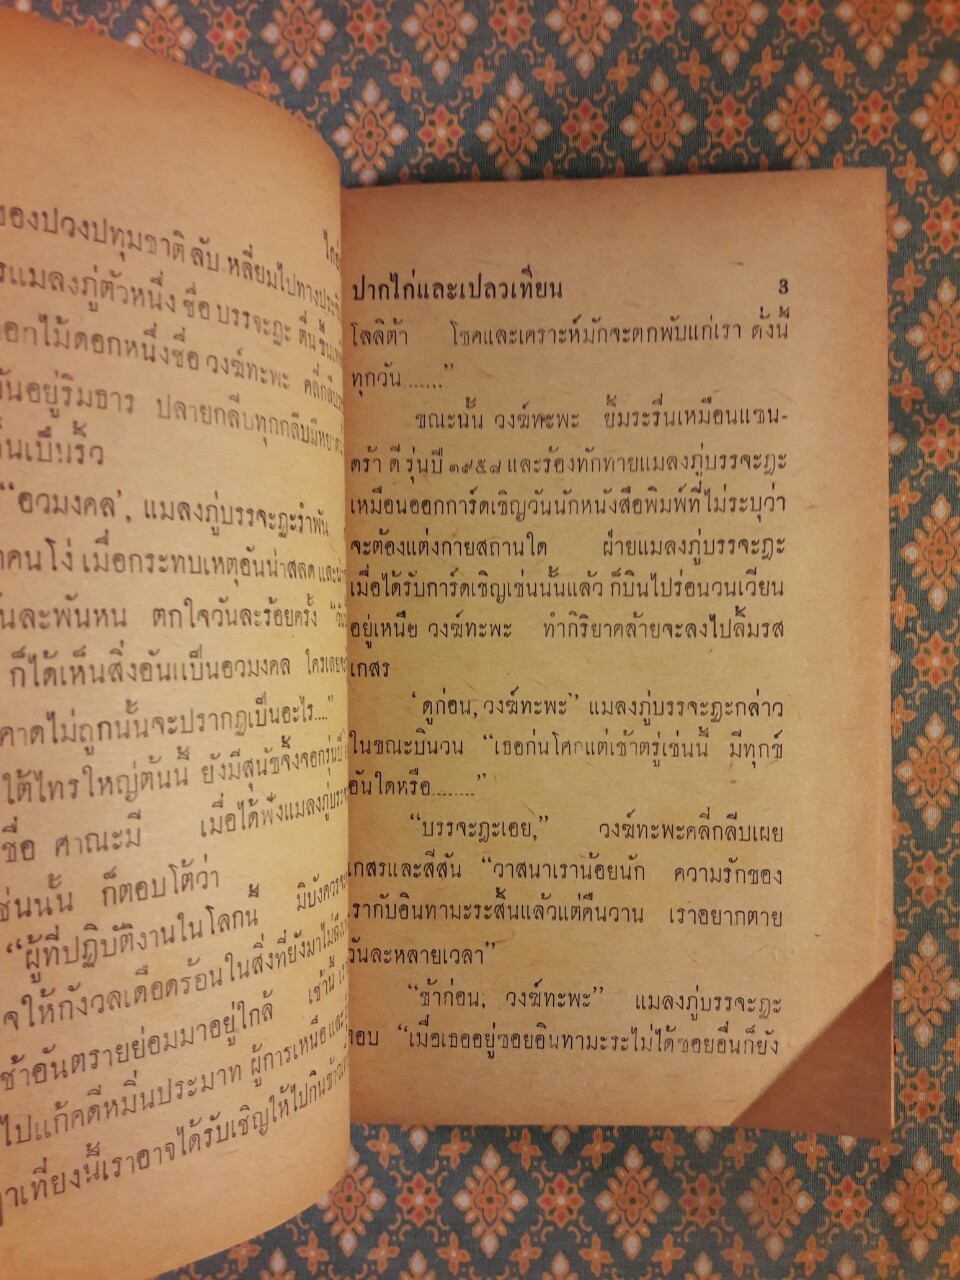 ของปวงปทุมชาติ ลับ หลี่ยมไปทางประจิ
รแมลงภู่ตัวหนึ่ง ชื่อ บรรจะฎะ ตื่น
อกไม้ดอกหนึ่งชื่อ วงฆ์ทะพะ
วันอยู่ริมธาร ปลายกลีบทุกกลีบมี
นเป็นริ้ว
“อวมงคล’, แมลงภู่บรรจะฎะรำพัน
าคนโง่ เมื่อกระทบเหตุอันน่าสลด
นละพันหน ตกใจวันละร้อยครั้ง
ก็ได้เห็นสิ่งอันเเป็นอวมงคล
คาดไม่ถูกนั้นจะปรากฏเป็นอะไร....”
ใต้ไทรใหญ่ต้นนี้ ยังมีสุนัขจิ้งจอกรุ่นปี
ชื่อ ศาณะมี เมื่อได้ฟังแมลงภู่
ช่นนั้น ก็ตอบโต้ว่า
“ผู้ที่ปฏิบัติงานในโลกนี้ มิบังควรจะ
จให้กังวลเดือดร้อนในสิ่งที่ยังมาไม่ถึง
ช้าอันตรายย่อมมาอยู่ใกล้ เช้านี้
ไปแก้คดีหมิ่นประมาท ผู้การเหนือและ
าเที่ยงนี้เราอาจได้รับเชิญให้ไปกินข้าว
ปากไก่และเปลวเทียน 3
โลลิต้า โชคและเคราะห์มักจะตกพับแก่เรา ดั่งนี้
ทุกวัน.......”
ขณะนั้น วงฆ์ทะพะ ยิ้มระรื่นเหมือนแซน-
ดร้า ดี รุ่นปี ๑๙๕๘ และร้องทักทายแมลงภู่บรรจะฎะ
เหมือนออกการ์ดเชิญวันนักหนังสือพิมพ์ที่ไม่ระบุว่า
จะต้องแต่งกายสถานใด ฝ่ายแมลงภู่บรรจะฎะ
เมื่อได้รับการ์ดเชิญเช่นนั้นแล้ว ก็บินไปร่อนวนเวียน
อยู่เหนือ วงฆ์ทะพะ ทำกิริยาคล้ายจะลงไปลิ้มรส
เกสร
‘ดูก่อน, วงฆ์ทะพะ” แมลงภู่บรรจะฎะกล่าว
ในขณะบินวน “เธอก่นโศกแต่เช้าตรู่เช่นนี้ มีทุกข์
อันใดหรือ........”
“บรรจะฎะเอย,” วงฆ์ทะพะคลี่กลีบเผย
เกสรและสีสัน “วาสนาเราน้อยนัก ความรักของ
เรากับอินทามะระสิ้นแล้วแต่คืนวาน เราอยากตาย
วันละหลายเวลา”
“ช้าก่อน, วงฆ์ทะพะ” แมลงภู่บรรจะฎะ
ตอบ “เมื่อเธออยู่ซอยอินทามะระไม่ได้ซอยอื่นก็ยัง